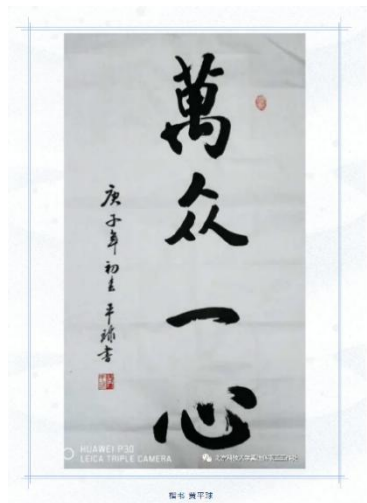 萬众一心
庚子年初春平球书
HUAWEI P30
LEICA TRIPLE CAMERA
楷书 黄平球